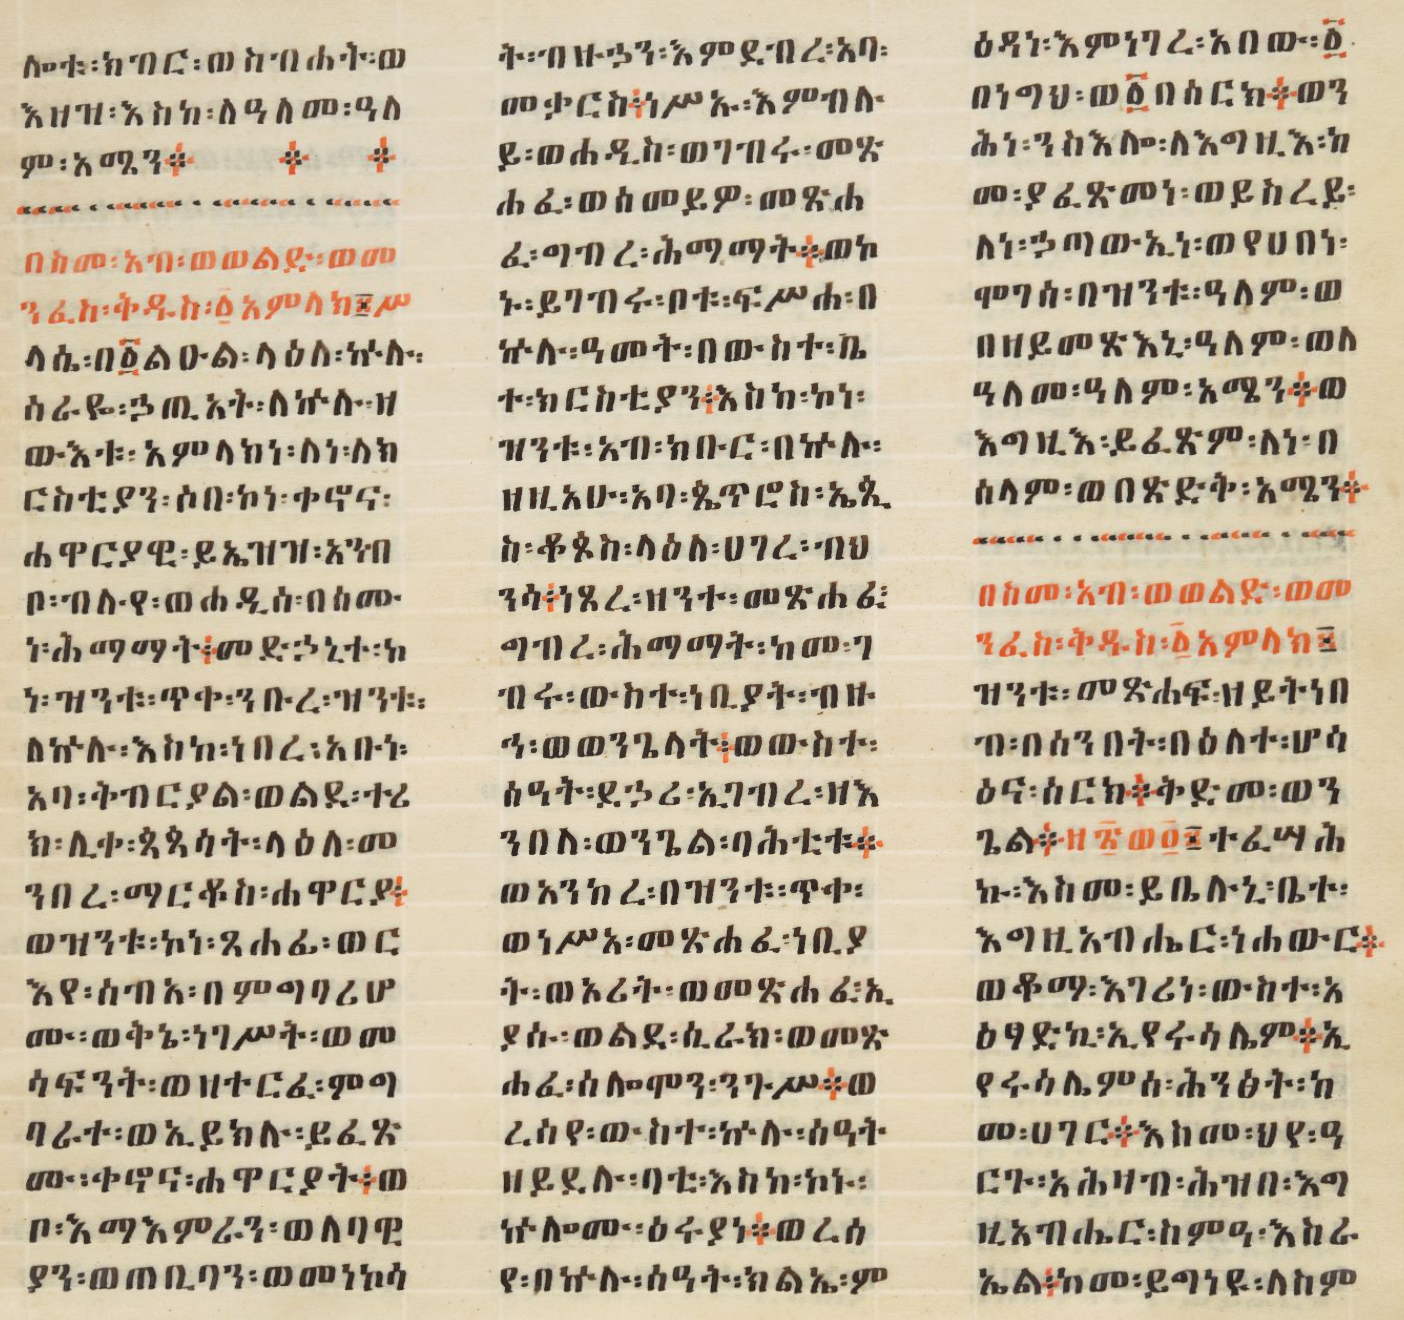 ሎቱ፡ክብር፡ወስብሐት፡ወ
እዘዝ፡እስከ፡ለዓለመ፡ዓለ
ም፡አሜን፨ ፨ ፨
በስመ፡አብ፡ወወልድ፡ወመ
ንፈስ፡ቅዱስ፡፩አምላክ፤ሥ
ላሴ፡በ፩ልዑል፡ላዕለ፡ኵሉ፡
ስራዬ፡ኃጢአት፡ለኵሉ፡ዘ
ውእቱ፡አምላክነ፡ለነ፡ለክ
ርስቲያን፡ሶበ፡ኮነ፡ቀኖና፡
ሐዋርያዊ፡ይኤዝዝ፡አንብ
ቦ፡ብሉየ፡ወሐዲስ፡በስሙ
ነ፡ሕማማት፨መድኃኒተ፡ከ
ነ፡ዝንቱ፡ጥቀ፡ንቡረ፡ዝንቱ፡
ለኵሉ፡እስከ፡ነበረ፡አቡነ፡
አባ፡ትብርያል፡ወልደ፡ተሪ
ክ፡ሊቀ፡ጳጳሳት፡ላዕለ፡መ
ንበረ፡ማርቆስ፡ሐዋርያ፨
ወዝንቱ፡ኮነ፡ጸሐፊ፡ወር
እየ፡ሰብአ፡በምግባሪሆ
ሙ፡ወቅኔ፡ነገሥት፡ወመ
ሳፍንት፡ወዘተርፈ፡ምግ
ባራተ፡ወኢይክሉ፡ይፈጽ
ሙ፡ቀኖና፡ሐዋርያት፨ወ
ቦ፡እማእምራን፡ወለባዊ
ያን፡ወጠቢባን፡ወመነኮሳ
ት፡ብዙኃን፡እምደብረ፡አባ፡
መቃርስ፨ነሥኡ፡እምብሉ
ይ፡ወሐዲስ፡ወገብሩ፡መጽ
ሐፈ፡ወሰመይዎ፡መጽሐ
ፈ፡ግብረ፡ሕማማት፨ወኮ
ኑ፡ይገብሩ፡ቦቱ፡ፍሥሐ፡በ
ኵሉ፡ዓመት፡በውስተ፡ቤ
ተ፡ክርስቲያን፨እስከ፡ኮነ፡
ዝንቱ፡አብ፡ክቡር፡በኵሉ፡
ዘዚአሁ፡አባ፡ጴጥሮስ፡ኤጲ
ስ፡ቆጶስ፡ላዕለ፡ሀገረ፡ብህ
ንሳ፨ነጸረ፡ዘንተ፡መጽሐፈ፡
ግብረ፡ሕማማት፡ከመ፡ገ
ብሩ፡ውስተ፡ነቢያት፡ብዙ
ኅ፡ወወንጌላት፨ወውስተ፡
ሰዓት፡ደኃሪ፡ኢገብረ፡ዘእ
ንበለ፡ወንጌል፡ባሕቲቱ፨
ወአንከረ፡በዝንቱ፡ጥቀ፡
ወነሥአ፡መጽሐፈ፡ነቢያ
ት፡ወኦሪት፡ወመጽሐፈ፡ኢ
ያሱ፡ወልደ፡ሲራክ፡ወመጽ
ሐፈ፡ሰሎሞን፡ንጉሥ፨ወ
ረሰየ፡ውስተ፡ኵሉ፡ሰዓት
ዘይደሉ፡ባቲ፡እስከ፡ኮኑ፡
ኵሎሙ፡ዕሩያነ፨ወረሰ
የ፡በኵሉ፡ሰዓት፡ክልኤ፡ም
ዕዳነ፡እምነገረ፡አበው፡፩
በነግህ፡ወ፩በሰርክ፨ወን
ሕነ፡ንስእሎ፡ለእግዚእ፡ከ
መ፡ያፈጽመነ፡ወይስረይ፡
ለነ፡ኃጣውኢነ፡ወየሀበነ፡
ሞገሰ፡በዝንቱ፡ዓለም፡ወ
በዘይመጽእኒ፡ዓለም፡ወለ
ዓለመ፡ዓለም፡አሜን፨ወ
እግዚእ፡ይፈጽም፡ለነ፡በ
ሰላም፡ወበጽድቅ፡አሜን፨
በስመ፡አብ፡ወወልድ፡ወመ
ንፈስ፡ቅዱስ፡፩አምላክ፤
ዝንቱ፡መጽሐፍ፡ዘይትነበ
ብ፡በሰንበት፡በዕለተ፡ሆሳ
ዕና፡ሰርክ፨ቅድመ፡ወን
ጌል፨ዘ፳ወ፬፤ተፈሣሕ
ኩ፡እስመ፡ይቤሉኒ፡ቤተ፡
እግዚአብሔር፡ነሐውር፨
ወቆማ፡እገሪነ፡ውስተ፡አ
ዕፃድኪ፡ኢየሩሳሌም፨ኢ
የሩሳሌምሰ፡ሕንፅት፡ከ
መ፡ሀገር፨እስመ፡ህየ፡ዓ
ርጉ፡አሕዛብ፡ሕዝበ፡እግ
ዚአብሔር፡ስምዓ፡እስራ
ኤል፨ከመ፡ይግነዩ፡ለስም